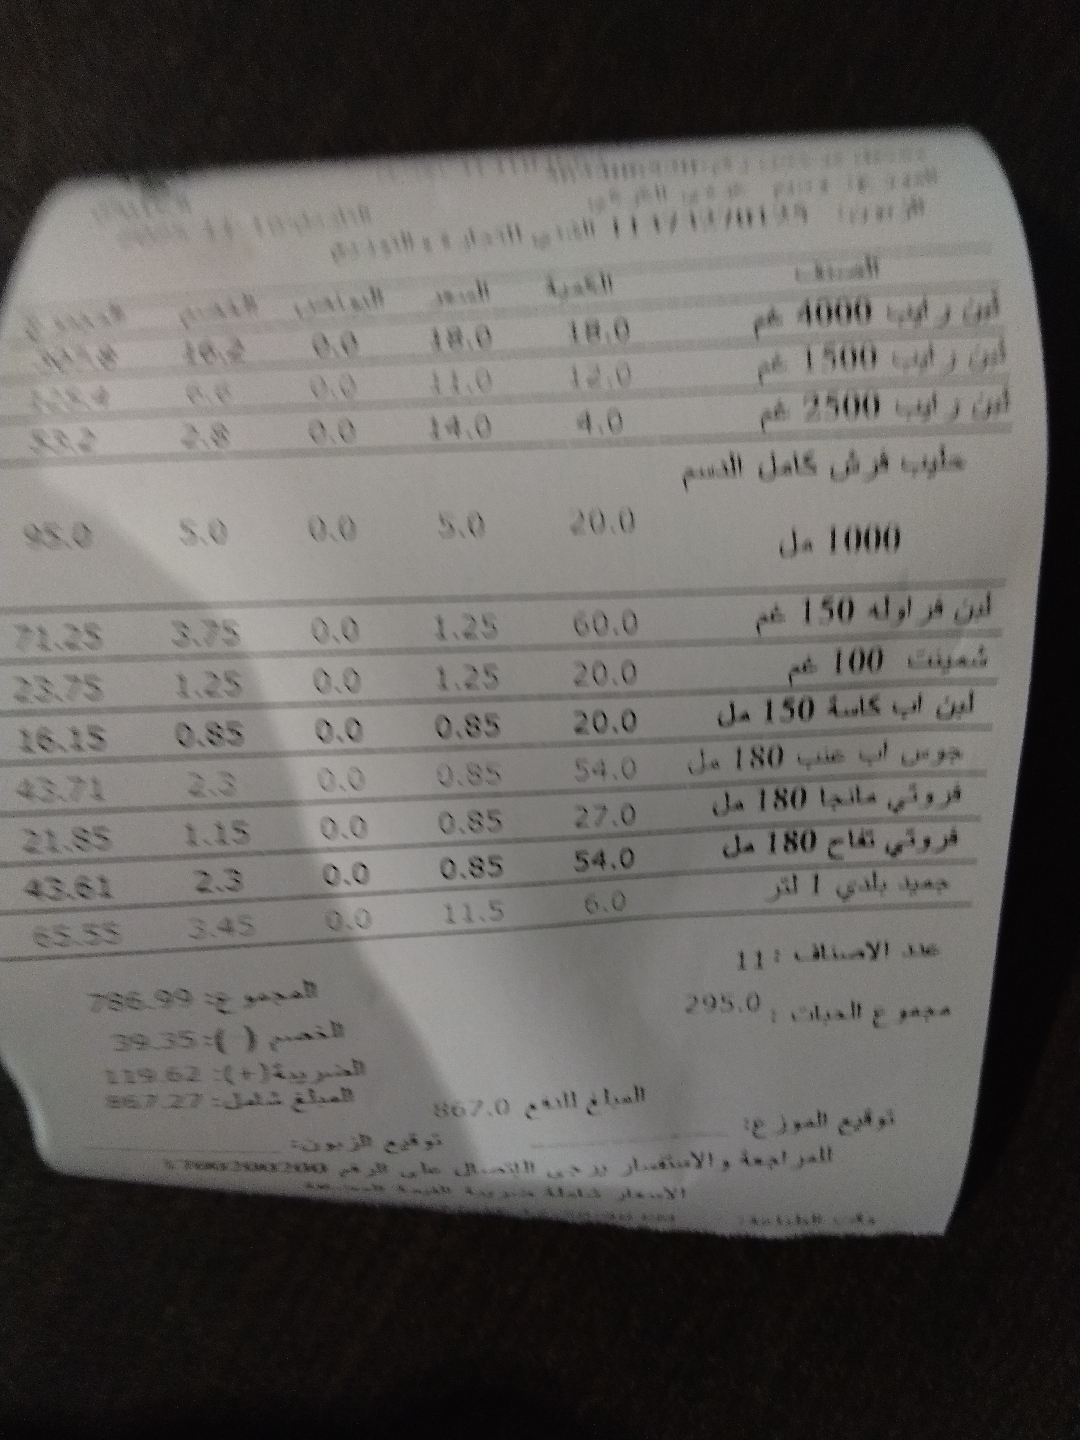 الصنف الكمية السعر البونص الخصم
لبن رايب 4000 غم 18.0 18.0 0.0 16.2
لبن رايب 1500 غم 12.0 11.0 0.0 6.6
لبن رايب 2500 غم 4.0 14.0 0.0 2.8 53.2
حليب فرش كامل الدسم
1000 مل 20.0 5.0 0.0 5.0 95.0
لبن فراوله 150 غم 60.0 1.25 0.0 3.75 71.25
شمينت 100 غم 20.0 1.25 0.0 1.25 23.75
لبن اب كاسة 150 مل 20.0 0.85 0.0 0.85 16.15
جوس اب عنب 180 مل 54.0 0.85 0.0 2.3 43.71
فروتي مانجا 180 مل 27.0 0.85 0.0 1.15 21.85
فروتي تفاح 180 مل 54.0 0.85 0.0 2.3 43.61
جميد بلدي 1 لتر 6.0 11.5 0.0 3.45 65.55
عدد الاصناف : 11
المجموع: 786.99
مجموع الحبات : 295.0
الخصم ( ): 39.35
الضريبة(+): 119.62
المبلغ شامل: 867.27
المبلغ للدفع 867.0
توقيع الموزع:
توقيع الزبون:
للمراجعة والاستفسار يرجى الاتصال على الرقم 1700200200
الاسعار شاملة ضريبة القيمة المضافة
وقت الطباعة: